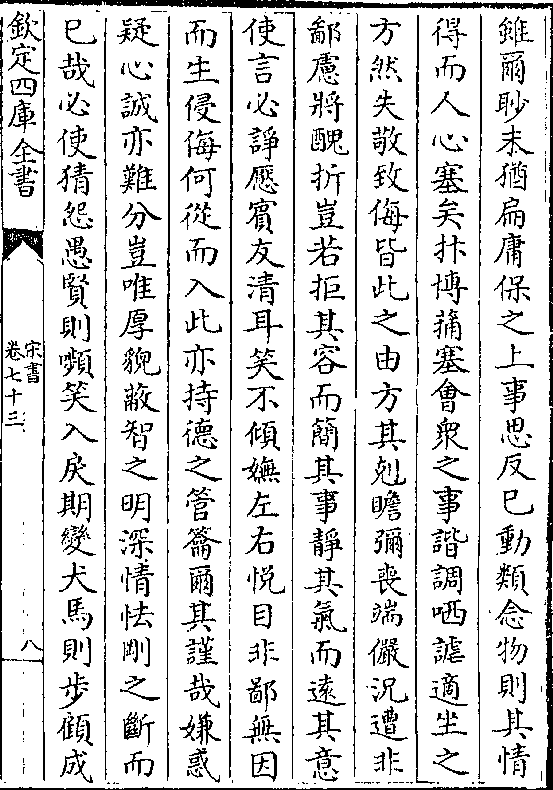 雖爾眇末猶扁庸保之上事思反已動類念物則其情
得而人心塞矣抃博蒱塞會衆之事諧調哂謔適坐之
方然失敬致侮皆此之由方其剋瞻彌喪端儼況遭非
鄙慮將醜折豈若拒其容而簡其事靜其氣而遠其意
使言必諍厭賓友清耳笑不傾嫵左右悅目非鄙無因
而生侵侮何從而入此亦持德之管籥爾其謹哉嫌惑
疑心誠亦難分豈唯厚貌蔽智之明深情怯剛之斷而
已哉必使猜怨愚賢則嚬笑入戾期變犬馬則步顧成
欽定四庫全書
宋書
卷七十三
八